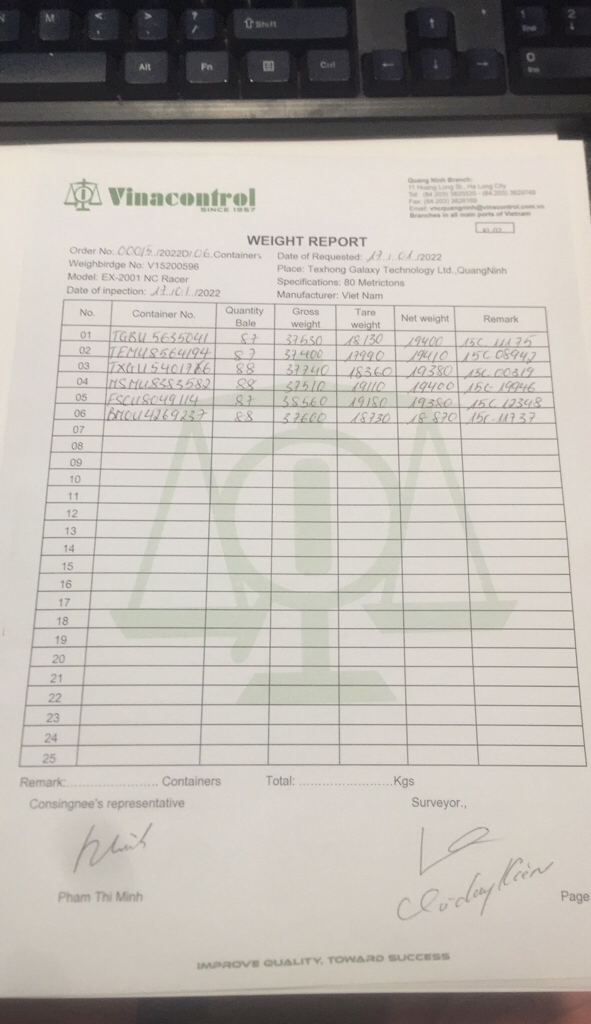 M < > ? ⇧Shift 1 End 2 ↓
Alt Fn Ctrl ← ↓ → ↑ 0 Ins
Vinacontrol
SINCE 1957
Quang Ninh Branch:
11 Hoang Long St., Ha Long City
Email: vncquangninh@vinacontrol.com.vn
Branches in all main ports of Vietnam
WEIGHT REPORT
Order No: 00015/2022D/06 Containers Date of Requested: 17/01/2022
Weighbridge No: V15200596 Place: Texhong Galaxy Technology Ltd.,QuangNinh
Model: EX-2001 NC Racer Specifications: 80 Metrictons
Date of inpection: 17/01/2022 Manufacturer: Viet Nam
No. Container No. Quantity Bale Gross weight Tare weight Net weight Remark
01 TGBU 5635041 87 37530 18130 19400 15C 11175
02 TEMU8564194 87 37400 17990 19410 15C 08942
03 TXGU5401766 88 37740 18360 19380 15C 00319
04 MSMU8383582 88 37510 19110 19400 15C-19946
05 FSCU8049114 87 38560 19180 19380 15C 12348
06 BMOU4269237 88 37600 18730 18870 15C-11737
07
08
09
10
11
12
13
14
15
16
17
18
19
20
21
22
23
24
25
Remark:...................... Containers Total: ......................Kgs
Consingnee's representative Surveyor.,
Minh
Pham Thi Minh Page
IMPROVE QUALITY, TOWARD SUCCESS